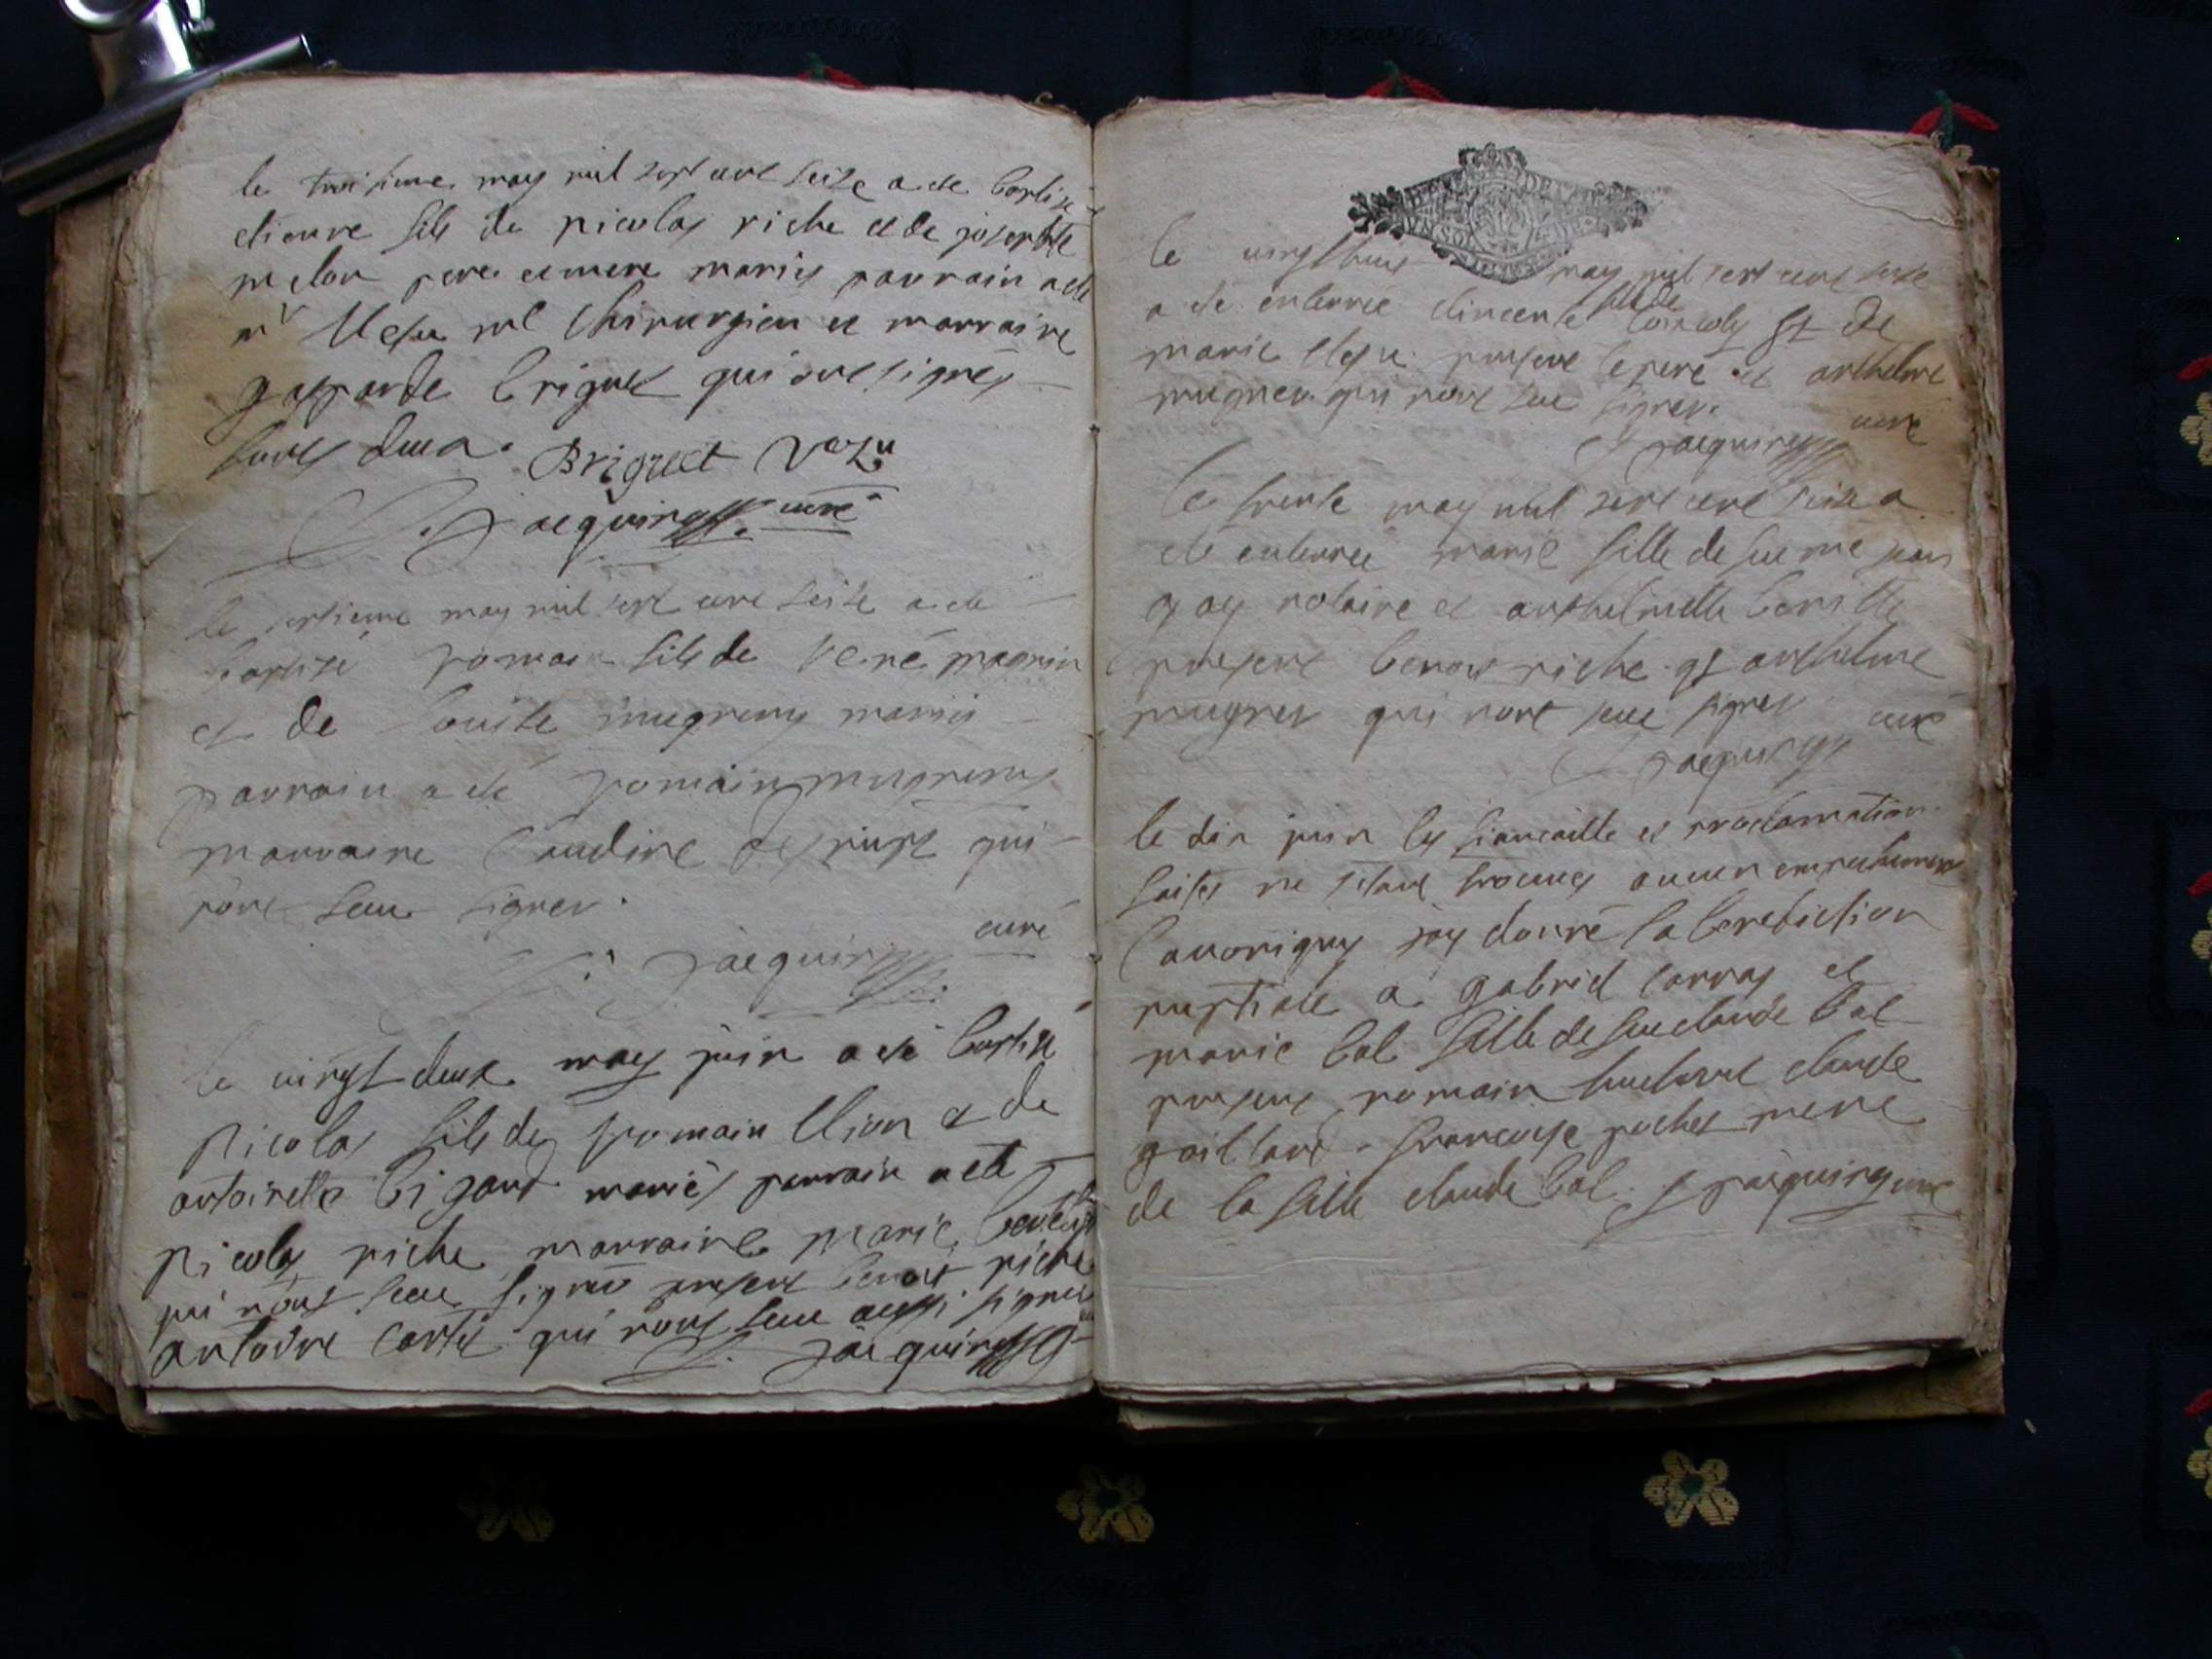 le troisieme may mil sept cent seise a ete baptisé
etienne fils de nicolas riche et de josephte
melon pere et mere mariés parrain a ete
mr Uesu me Chirurgien et marraine
gasparde briguet qui ont signés
tous deux. Briguet Vezu
Jacquin curé
le septieme may mil sept cent seise a eté
baptisé romain fils de rené magnin
et de louise mugneny mariés
parrain a eté romain mugneny
marraine Claudine qui
nont seeu signer.
Jacquin curé
le vingt deux may juin a eté baptisé
Nicolas fils de romain Uion et de
antoinette bigand mariés parrain a eté
Nicolas riche marraine marie
qui nont seeu signer present benoit riche
antoine cortié qui nont seeu aussi signer
Jacquin
le vingt huit may mil sept cent seise
a eté enterrée fille de nicolas et de
marie present le pere et anthelme
mugnier qui nont seeu signer.
Jacquin curé
le trente may mil sept cent seise a
eté enterrée marie fille de feu me jean
gay notaire et anthelmette
present benoit riche et anthelme
mugnier qui nont seeu signer
Jacquin curé
le dix juin les fiancaille et proclamation
faites ne setant trouves aucun empechement
Canonique jay donné la benediction
nuptiale a gabriel carraz et
marie bal fille de feu claude bal
present romain claude
gaillard francoise pochet mere
de la fille claude bal. Jacquin curé